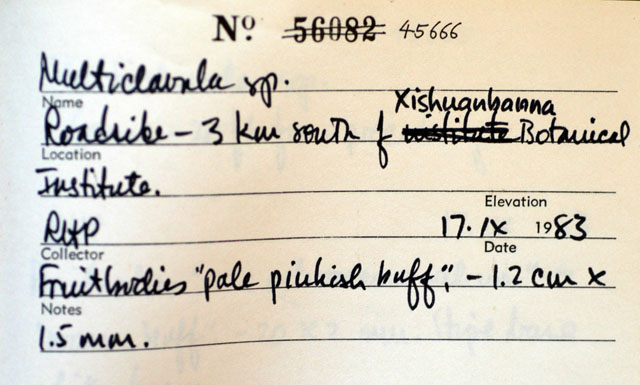 Nº 56082 45666
Multiclavula sp.
Name
Xishuanbanna
Roadside - 3 km south of institute Botanical
Location
Institute.
Elevation
RHP 17.IX 1983
Collector Date
Fruitbodies "pale pinkish buff"; - 1.2 cm x
Notes
1.5 mm.